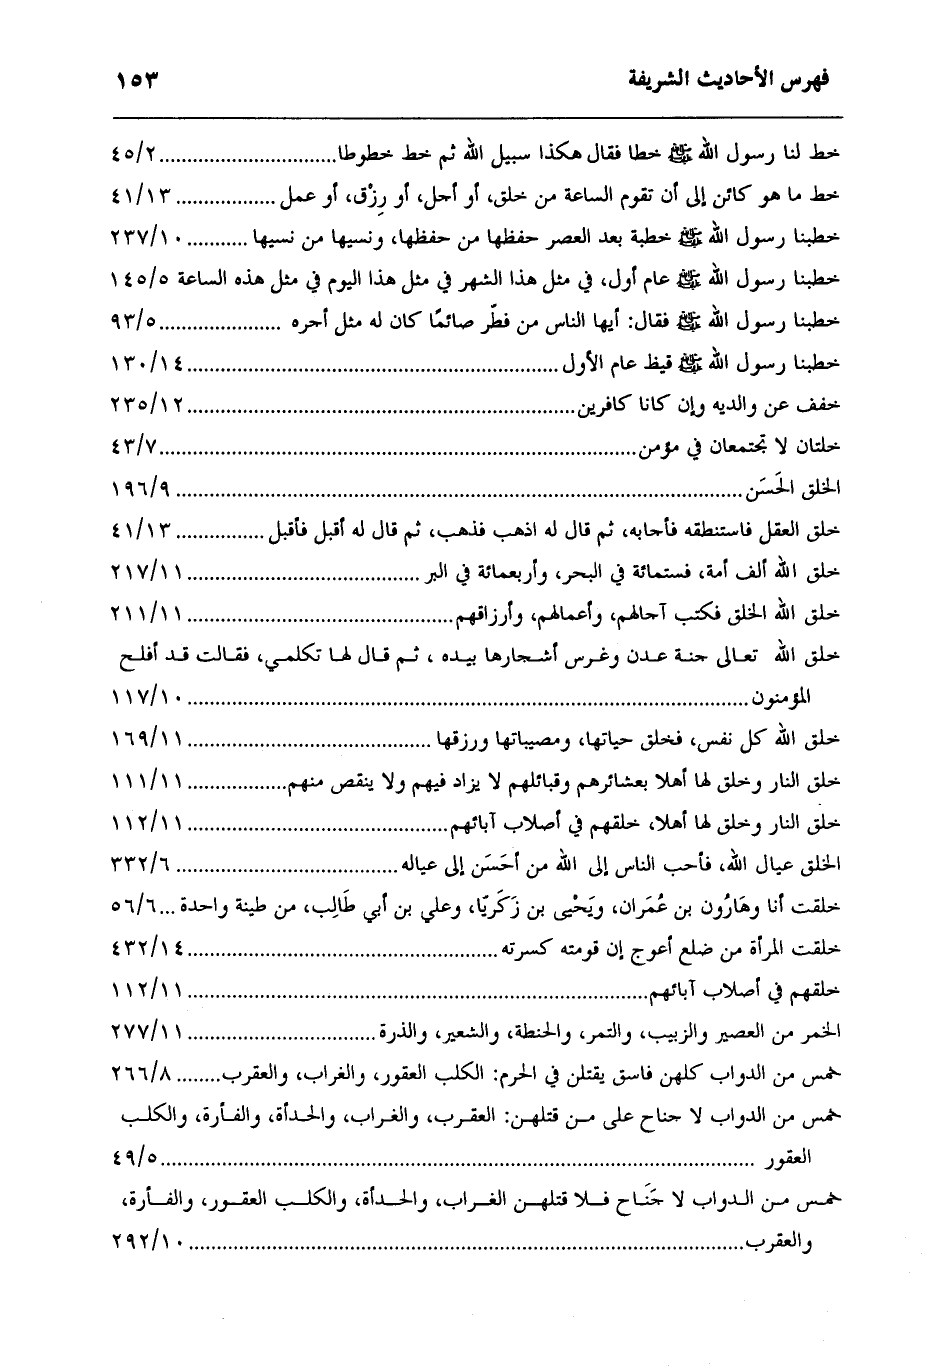 فهرس الأحاديث الشريفة ١٥٣
خط لنا رسول الله ﷺ خطا فقال هكذا سبيل الله ثم خط خطوطا................................٤٥/٢
خط ما هو كائن إلى أن تقوم الساعة من خلق، أو أحل، أو رِزْق، أو عمل ..................٤١/١٣
خطبنا رسول الله ﷺ خطبة بعد العصر حفظها من حفظها، ونسيها من نسيها ...........٢٣٧/١٠
خطبنا رسول الله ﷺ عام أول، في مثل هذا الشهر في مثل هذا اليوم في مثل هذه الساعة ١٤٥/٥
خطبنا رسول الله ﷺ فقال: أيها الناس من فطّر صائمًا كان له مثل أحره ......................٩٣/٥
خطبنا رسول الله ﷺ قيظ عام الأول...................................................................١٣٠/١٤
خفف عن والديه وإن كانا كافرين......................................................................٢٣٥/١٢
خلتان لا تجتمعان في مؤمن......................................................................................٤٣/٧
الخلق الحَسَن......................................................................................................١٩٦/٩
خلق العقل فاستنطقه فأحابه، ثم قال له اذهب فذهب، ثم قال له أقبل فأقبل ................٤١/١٣
خلق الله ألف أمة، فستمائة في البحر، وأربعمائة في البر ..........................................٢١٧/١١
خلق الله الخلق فكتب آحالهم، وأعمالهم، وأرزاقهم................................................٢١١/١١
خلق الله تعالى حنة عدن وغرس أشجارها بيده ، ثم قال لها تكلمي، فقالت قد أفلح
المؤمنون.....................................................................................................١١٧/١٠
خلق الله كل نفس، فخلق حياتها، ومصيباتها ورزقها ............................................١٦٩/١١
خلق النار وخلق لها أهلا بعشائرهم وقبائلهم لا يزاد فيهم ولا ينقص منهم..................١١١/١١
خلق النار وخلق لها أهلا، خلقهم في أصلاب آبائهم...............................................١١٢/١١
الخلق عيال الله، فأحب الناس إلى الله من أحَسَن إلى عياله ........................................٣٣٢/٦
خلقت أنا وهَارُون بن عُمَران، ويَحْيى بن زَكَريّا، وعلي بن أبي طَالِب، من طينة واحدة ...٥٦/٦
خلقت المرأة من ضلع أعوج إن قومته كسرته ........................................................٤٣٢/١٤
خلقهم في أصلاب آبائهم...................................................................................١١٢/١١
الخمر من العصير والزبيب، والتمر، والحنطة، والشعير، والذرة..................................٢٧٧/١١
خمس من الدواب كلهن فاسق يقتلن في الحرم: الكلب العقور، والغراب، والعقرب........٢٦٦/٨
خمس من الدواب لا حناح على من قتلهن: العقرب، والغراب، والحدأة، والفأرة، والكلب
العقور ...........................................................................................................٤٩/٥
خمس من الدواب لا جَنَاح فلا قتلهن الغراب، والحدأة، والكلب العقور، والفأرة،
والعقرب....................................................................................................٢٩٢/١٠